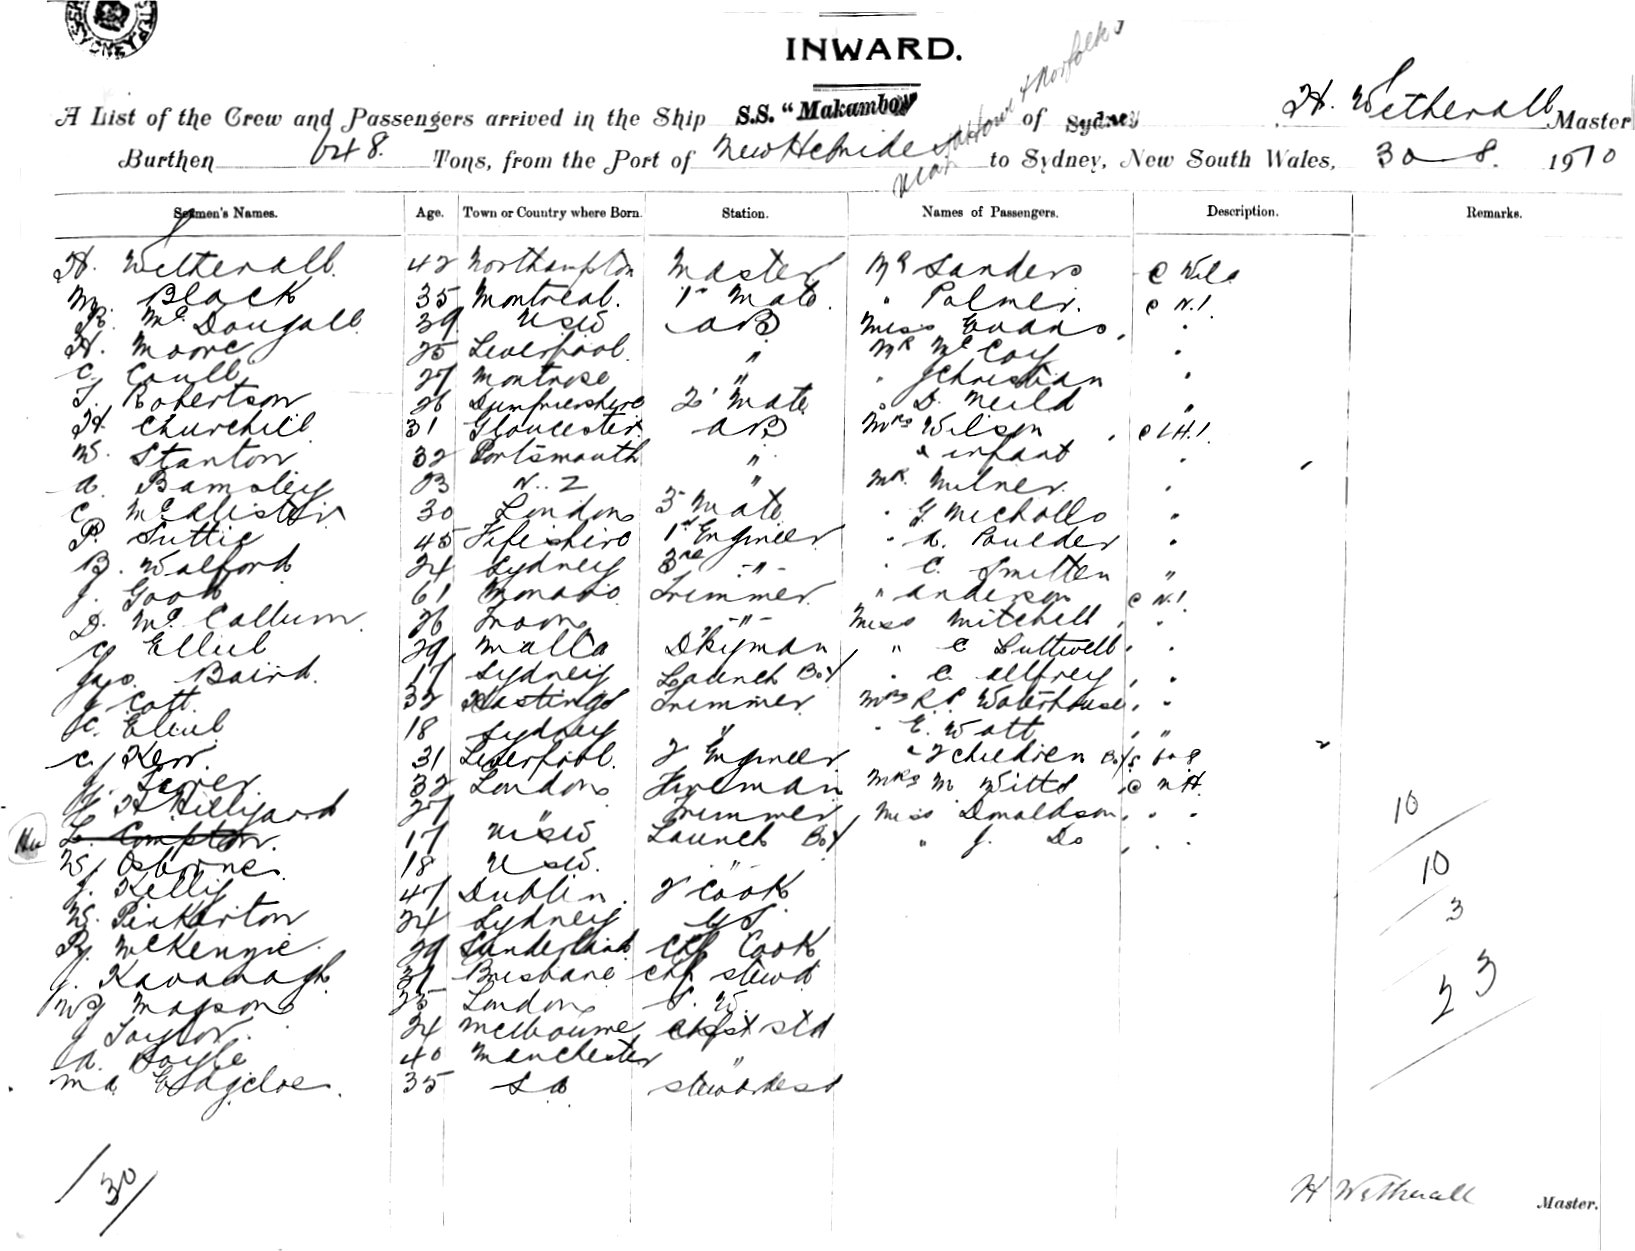 INWARD.
A List of the Crew and Passengers arrived in the Ship S.S. "Makambo" of Sydney H. Wetherall Master
Burthen Tons, from the Port of New Hebrides to Sydney, New South Wales, 30 8. 1910
Seamen's Names. Age. Town or Country where Born. Station. Names of Passengers. Description. Remarks.
H. Wetherall 42 Northampton Master Mr Sanders
Black 35 Montreal. 1st Mate " Palmer. C N.I.
McDougall 39 NSW AB Miss Evans "
H. Moore 25 Liverpool " Mr McCoy "
C. Coull 27 Montrose " " J Christian "
T. Robertson 26 Dumfriesshire 2d Mate " D. Neild "
H. Churchill 31 Gloucester AB Mrs Wilson C LHI
W. Stanton 32 Portsmouth " & infant "
A. Bamsley N.Z " Mr. Milner "
C. McAlister 30 London 3rd Mate " G Nicholls "
P. Suttie 45 Fifeshire 1st Engineer " A. "
B. Walford 24 Sydney 3rd -"- " C. Smitten "
J. Gook 61 Trimmer " Anderson C N.I.
D. McCallum 26 -"- Miss Mitchell "
C Ellul 29 Malta Dkyman " C Luttwell "
Jas. Baird. 17 Sydney Launch Boy " C. Allfrey "
J Catt 32 Hastings Trimmer Mrs R.P. Waterhouse "
C. Ellul 18 Sydney " " E. Watt "
C Kerr. 31 Liverpool. 2 Engineer " 2 children
32 London Fireman Mrs M Witts C NH
Hilliyard 27 " Trimmer Miss Donaldson "
L. Compton. 17 NSW Launch Boy " J. Do "
W Osborne. 18 NSW. "
J. Kelly 47 Dublin. 2 Cook
W. Pinkerton 24 Sydney
McKenzie 29 Sunderland Chf Cook
J. Kavanagh Brisbane Chf Stewd
Magson 25 London
J Taylor. 24 Melbourne
A. Doyle 40 Manchester "
35 S A Stewardess
10
10
3
23
30
H Wetherall Master.